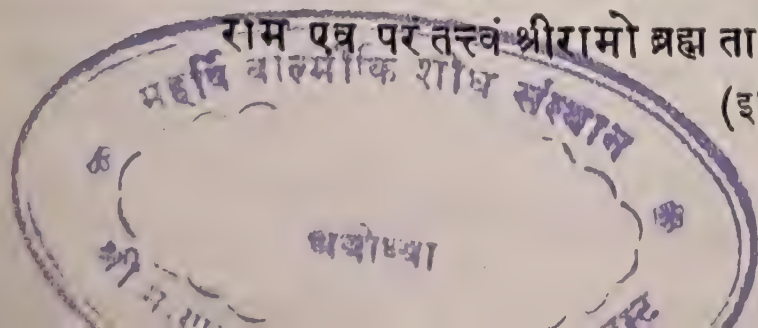 राम एव परं तत्त्वं श्रीरामो ब्रह्म ता
(इ
महर्षि वाल्मीकि शोध संस्थान
अयोध्या
श्री